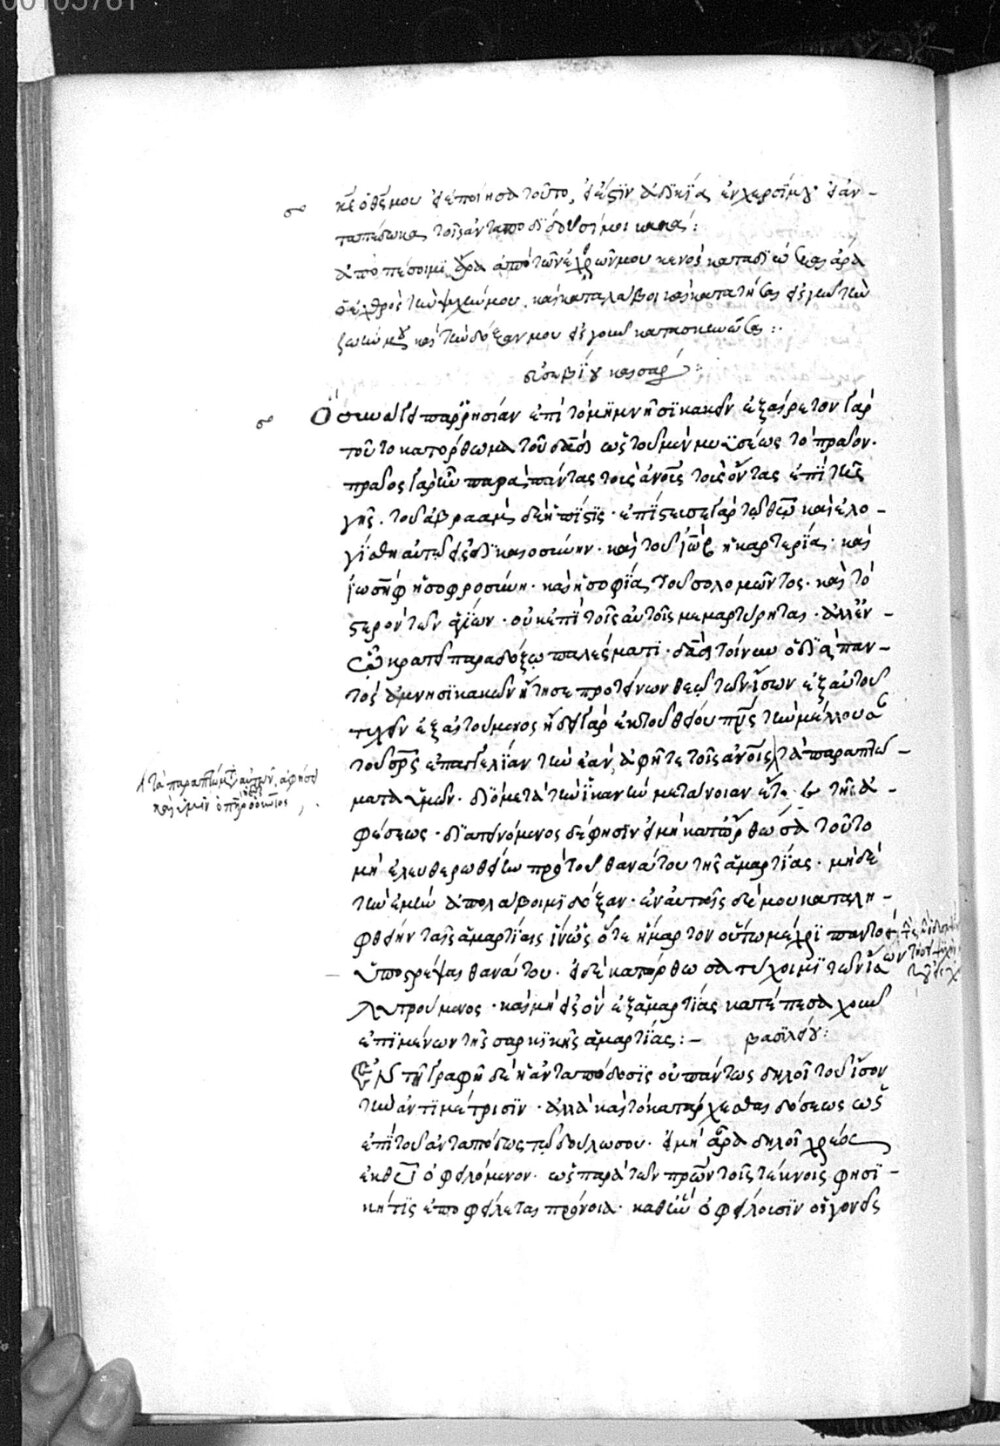 κε ὁ θς μου εἰ ἐποίησα τοῦτο, εἰ ἔστιν ἀδικία ἐν χερσί μου· εἰ ἀν-
ταπέδωκα τοῖς ἀνταποδιδοῦσί μοι κακά:
ἀποπέσοιμι ἄρα ἀπὸ τῶν ἐχθρῶν μου κενός καταδιώξαι ἄρα
ὁ ἐχθρὸς τὴν ψυχήν μου, καὶ καταλάβοι καὶ καταπατήσαι εἰς γῆν τὴν
ζωήν μου καὶ τὴν δόξαν μου εἰς χοῦν κατασκηνώσαι:
εὐσεβίου καισαρ:
Ὅση παρρησίαν ἐπὶ τὸ μὴ μνησικακεῖν ἐξαίρετον γὰρ
τοῦτο κατόρθωμα τοῦ δαδ ὡς τοῦ μὲν μωϋσέως τὸ πρᾶον·
πρᾶος γὰρ ἦν παρὰ πάντας τοὺς ἀνους τοὺς ὄντας ἐπὶ τῆς
γῆς. τοῦ ἀβραὰμ δὲ ἡ πίστις· ἐπίστευσε γὰρ τῷ θω καὶ ἐλο-
γίσθη αὐτῷ εἰς δικαιοσύνην· καὶ τοῦ ἰὼβ ἡ καρτερία· καὶ
ἰωσὴφ ἡ σοφροσύνη· καὶ ἡ σοφία τοῦ σολομῶντος· καὶ τὸ
στερὸν τῶν ἁγίων· οὐκ ἐπὶ τοῖς αὐτοῖς μεμαρτύρηται· ἀλλ' ἐν
παραδόξω παλέσματι· δαδ τοίνυν ὁ διὰ παν-
τὸς ἀμνησικακῶν ᾔτησε προτείνων θεῷ τῶν ἴσων ἐξ αὐτοῦ
τυχεῖν ἐξαιτούμενος ᾔδει γὰρ ἐκ τοῦ θείου πνς τὴν μέλλουσαν
τοῦ σρς ἐπαγγελίαν τὴν ἐὰν ἀφῆτε τοῖς ἀνοις τὰ παραπτώ-
ματα ὑμῶν· διὸ μετὰ τὴν ἱκανὴν μετάνοιαν τῆς ἀ-
φέσεως· διαπεινόμενος δέ φησὶν εἰ μὴ κατώρθωσα τοῦτο
μὴ ἐλευθερωθείην πρὸ τοῦ θανάτου τῆς ἁμαρτίας· μηδὲ
τὴν ἐμὴν ἀπολάβοιμι δόξαν· ἐν αὐταῖς δέ μου καταλη-
φθείην ταῖς ἁμαρτίαις ὅτε ἥμαρτον οὕτω μέχρι παντὸς
ὑποστρέψας θανάτου· εἰ δὲ κατόρθωσα τύχοιμι τῶν
λυτρούμενος· καὶ μὴ εἰς ὃν ἐξ ἁμαρτίας κατέπεσα χοῦν
ἐπιμένων τῆς σαρκικῆς ἁμαρτίας:– βασιλείου:
Ἐν τῇ γραφῇ δὲ ἡ ἀνταπόδοσις οὐ πάντως δηλοῖ τοῦ ἴσου
τὴν ἀντιμέτρισιν· ἀλλὰ καὶ τὸ κατάρχεσθαι δόσεως ὡς
ἐπὶ τοῦ ἀνταπόδος τῷ δούλω σου· εἰ μὴ ἄρα δηλοῖ χρέος
ἐκ θυ ὀφειλόμενον· ὡς παρὰ τῶν πρων τοῖς τέκνοις φησὶ-
κή τις ἐποφείλεται πρόνοια· καθ' ἣν ὀφείλουσιν οἱ γονεῖς
τὰ παραπτώματα αὐτῶν, ἀφήσει
καὶ ὑμῖν ὁ πηρ ὁ οὐνιος